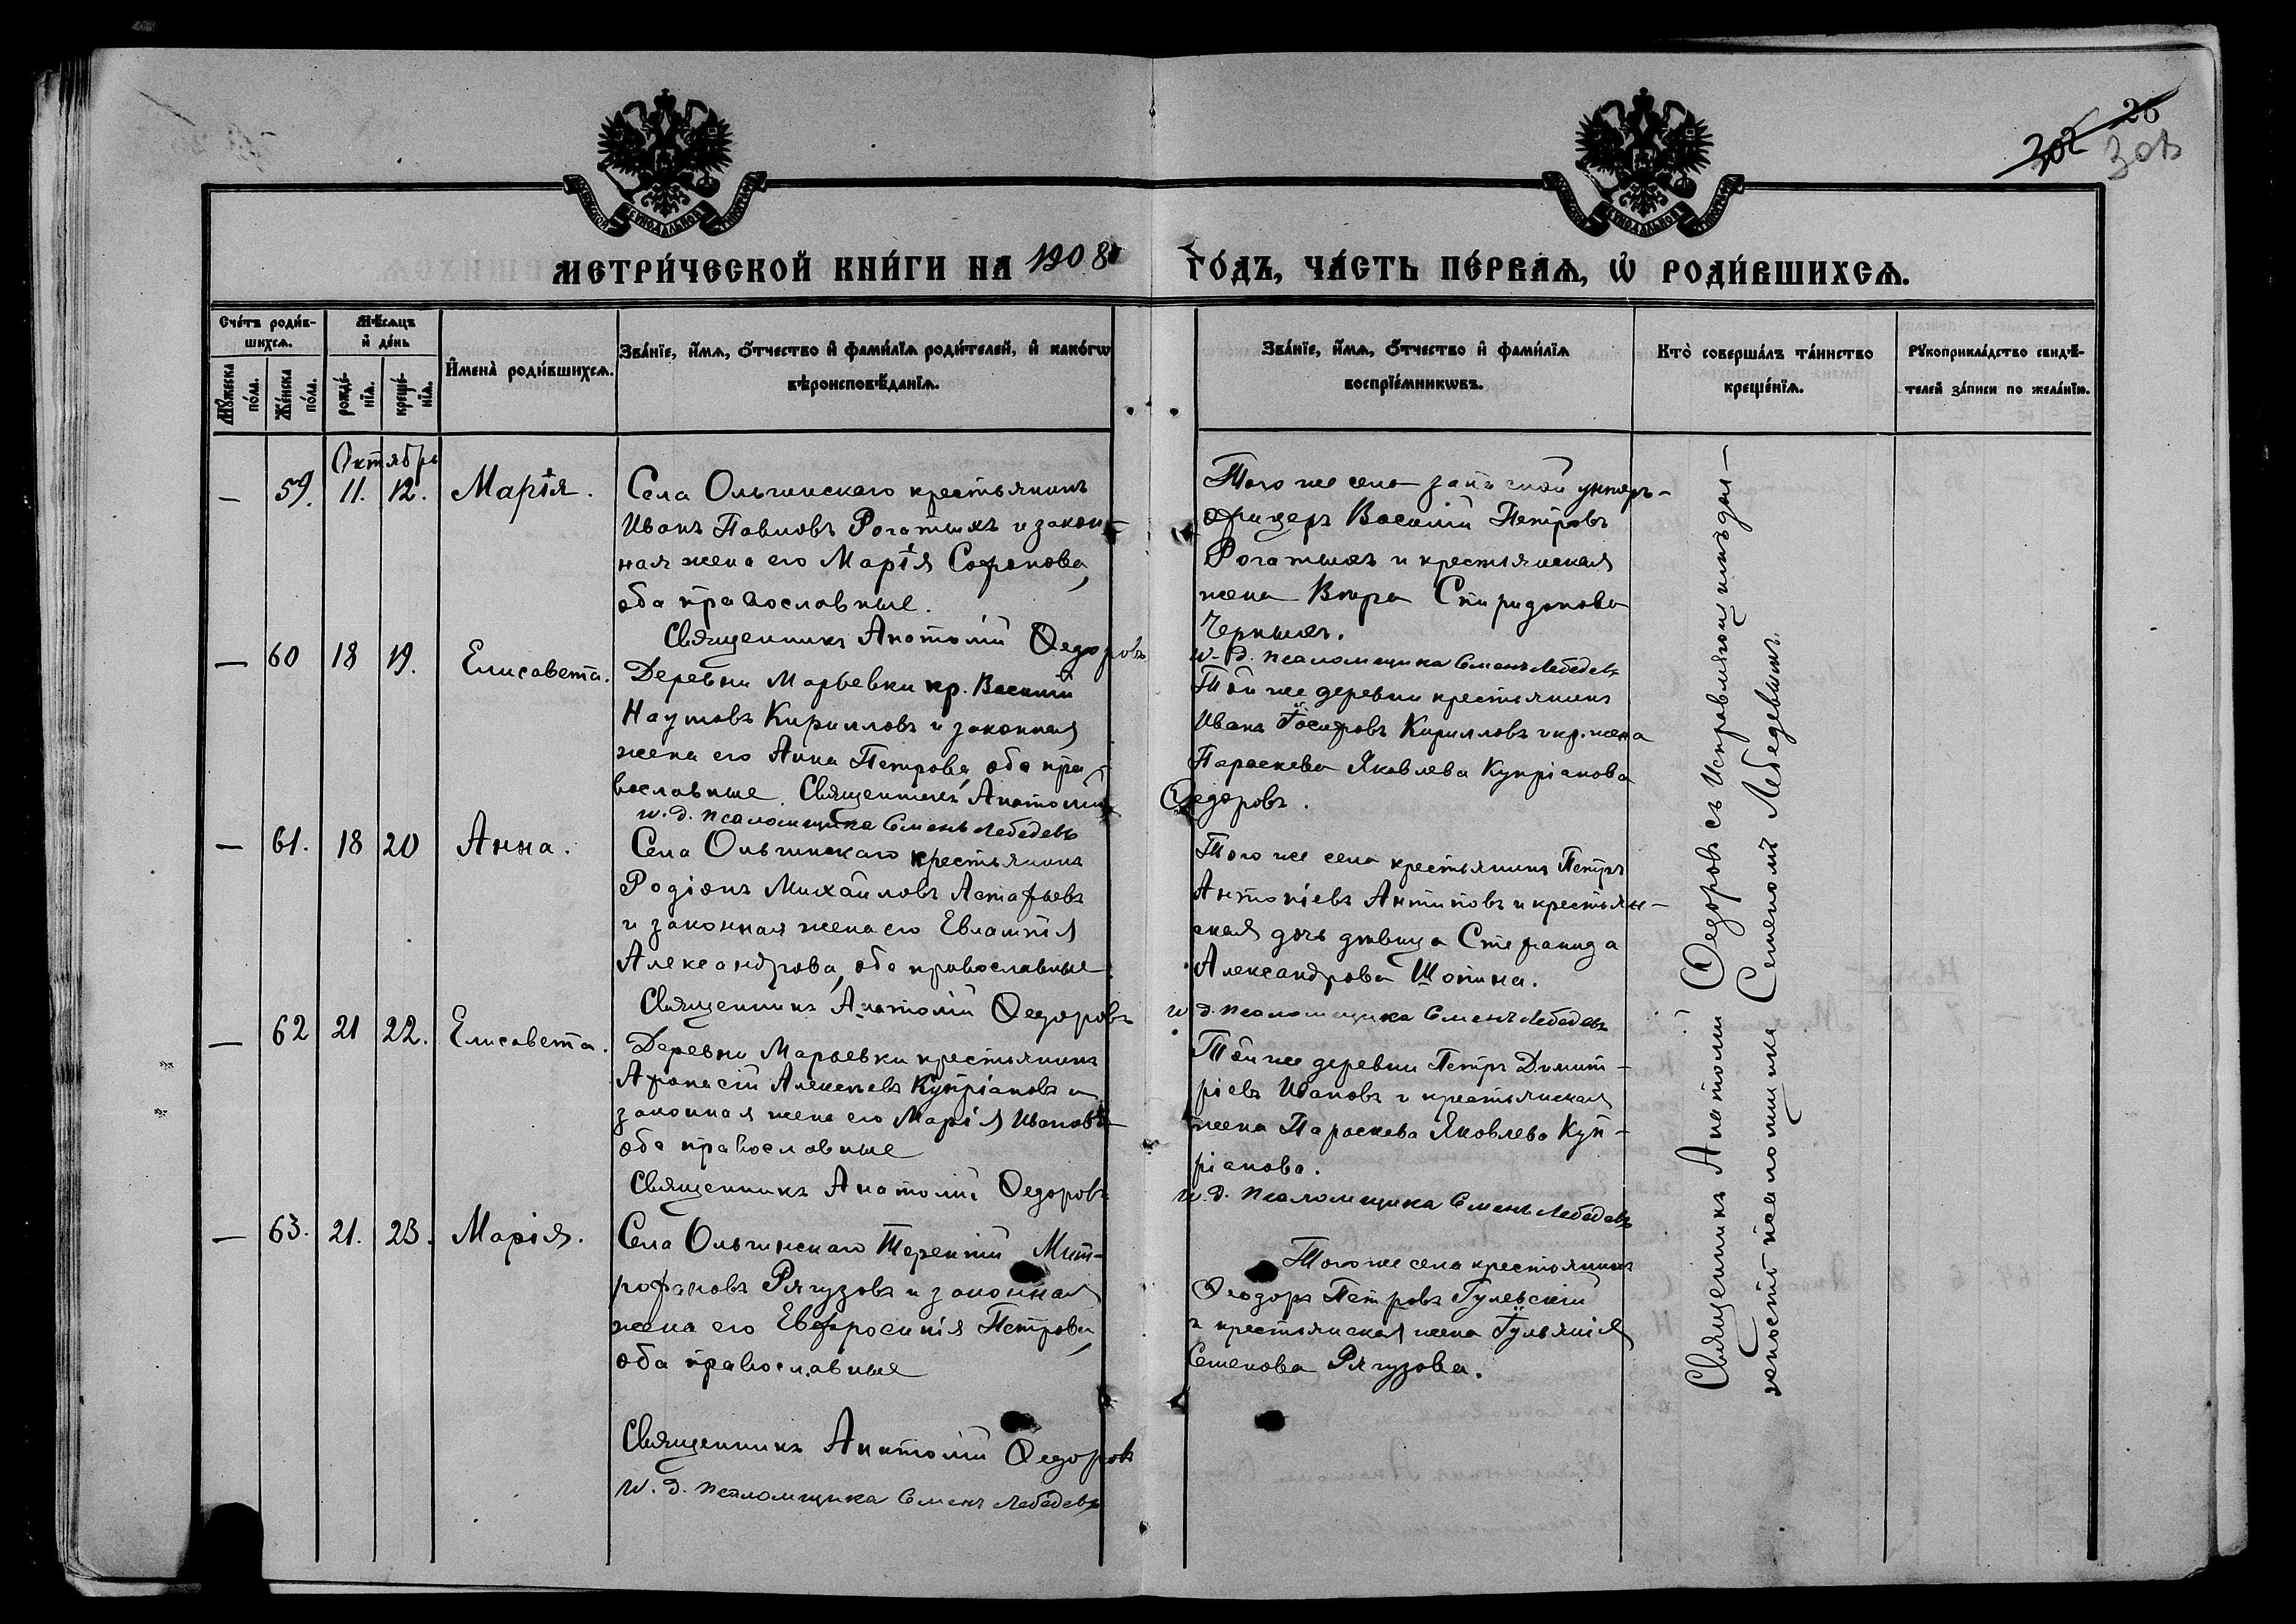 26
302
303
МЕТРИ́ЧЕСКОЙ КНИ́ГИ НА 1908 ГО́ДЪ, ЧА́СТЬ ПЕ́РВАѦ, Ѡ҆ РОДИ́ВШИХСѦ.
Сче́тъ роди́в-
шихсѧ.
Мꙋ́жеска по́ла.
Же́нска по́ла.
Мѣ́сѧцъ и҆ де́нь
рожде́-
нїѧ.
креще́-
нїѧ.
И҆мена̀ роди́вшихсѧ.
Зва́нїе, и҆́мѧ, ѻ҆́тчество и҆ фами́лїѧ роди́телей, и҆ како́гѡ
вѣроисповѣ́данїѧ.
Зва́нїе, и҆́мѧ, ѻ҆́тчество и҆ фами́лїѧ
воспрїе́мникѡвъ.
Кто̀ соверша́лъ та́инство
креще́нїѧ.
Рꙋкоприкла́дство свидѣ́-
телей за́писи по жела́нїю.
Октябрь
— 59. 11. 12. Марія.
Села Ольгинскаго крестьянинъ
Иванъ Павловъ Рогатыхъ и закон-
ная жена его Марія Софонова,
оба православные.
Священникъ Анатолій Ѳедоровъ
Того же села запасной унтеръ-
офицеръ Василій Петровъ
Рогатыхъ и крестьянская
жена Вѣра Спиридонова
Черныхъ.
и. д. псаломщика Семенъ Лебедевъ
— 60 18 19. Елисавета.
Деревни Марьевки кр. Василій
Наумовъ Кирилловъ и законная
жена его Анна Петрова, оба пра-
вославные. Священникъ Анатолій Ѳедоровъ.
и. д. псаломщика Семенъ Лебедевъ
Той же деревни крестьянинъ
Иванъ Іосифовъ Кирилловъ и кр. жена
Параскева Яковлева Купріанова
— 61. 18 20 Анна.
Села Ольгинскаго крестьянинъ
Родіонъ Михайловъ Астафьевъ
и законная жена его Евлампія
Александрова, оба православные
Священникъ Анатолій Ѳедоровъ
Того же села крестьянинъ Петръ
Антоніевъ Антиповъ и крестьян-
ская дочь дѣвица Стефанида
Александрова Шопина.
и. д. псаломщика Семенъ Лебедевъ
— 62 21 22. Елисавета.
Деревни Марьевки крестьянинъ
Афанасій Алексѣевъ Купріановъ и
законная жена его Марія Иванова
оба православные
Священникъ Анатолій Ѳедоровъ
Той же деревни Петръ Димит-
ріевъ Ивановъ и крестьянская
жена Параскева Яковлева Куп-
ріанова.
и. д. псаломщика Семенъ Лебедевъ
— 63. 21. 23. Марія.
Села Ольгинскаго Терентій Мит-
рофановъ Рягузовъ и законная
жена его Евфросинія Петрова,
оба православные
Того же села крестьянинъ
Ѳеодоръ Петровъ Гулевскій
и крестьянская жена Іуліанія
Семенова Рягузова.
Священникъ Анатолій Ѳедоровъ
и. д. псаломщика Семенъ Лебедевъ
Священникъ Анатолій Ѳедоровъ съ исправляющимъ дол-
жность псаломщика Семеномъ Лебедевымъ.